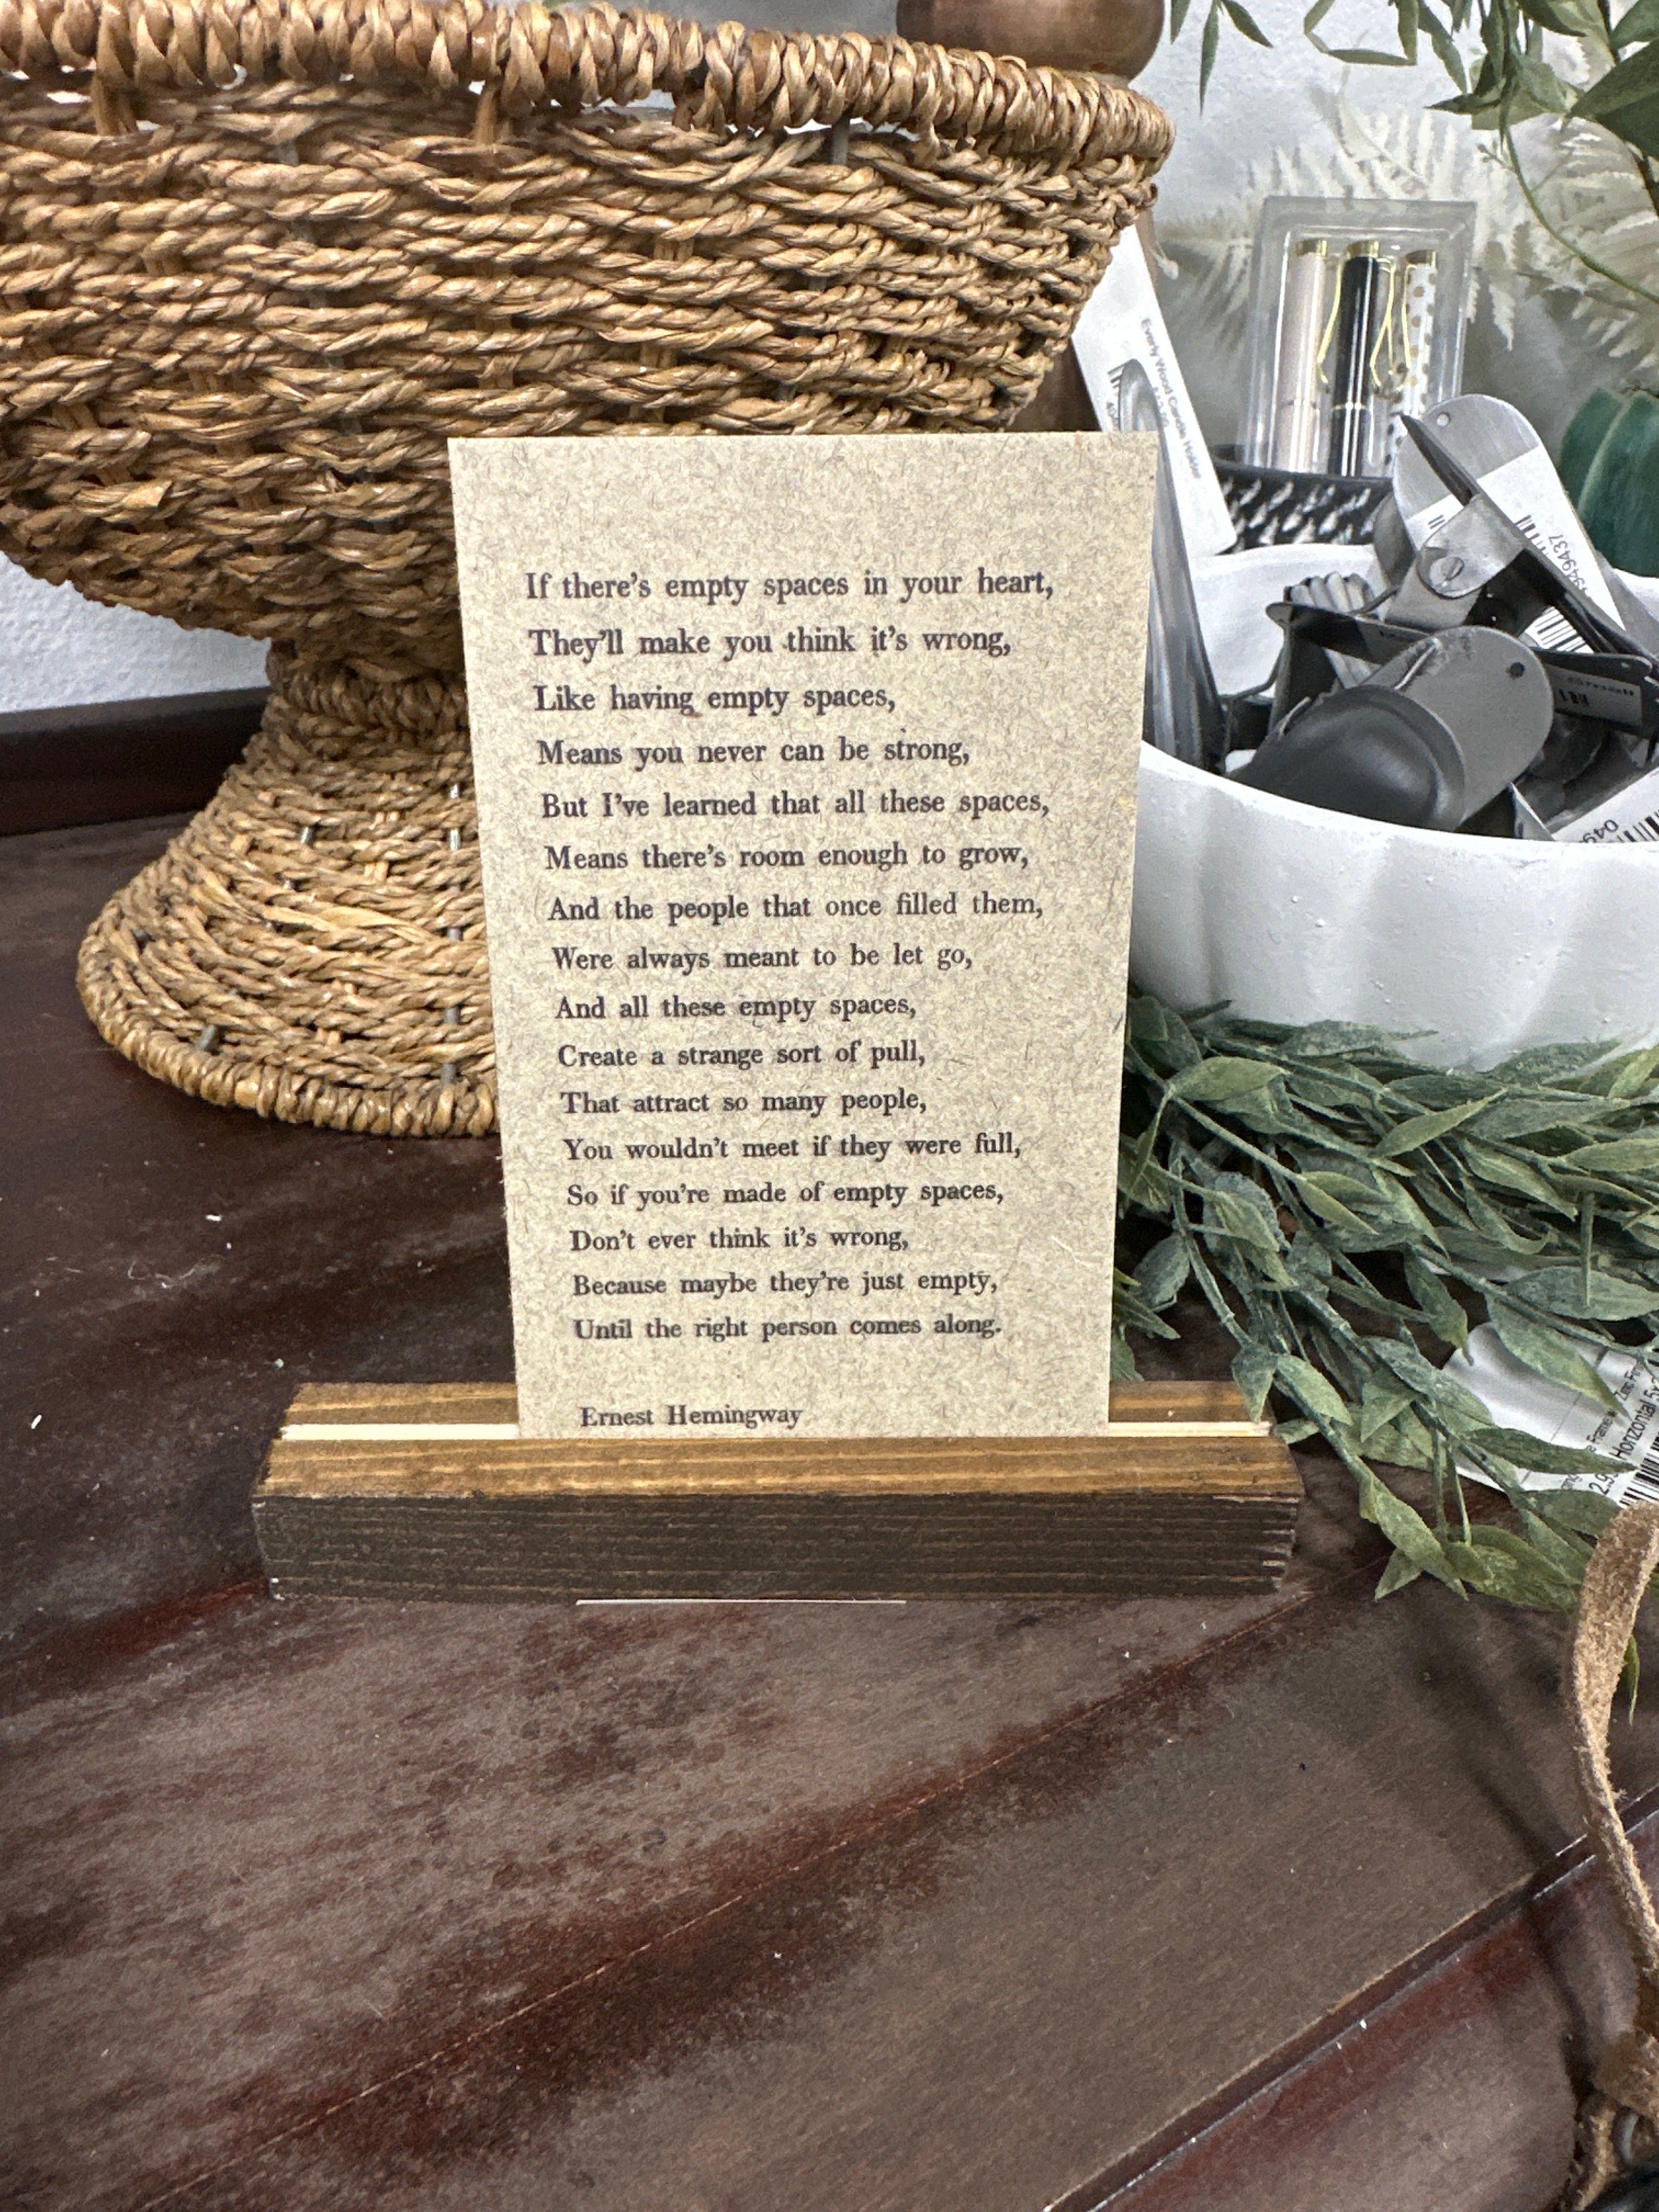 If there's empty spaces in your heart,
They'll make you think it's wrong,
Like having empty spaces,
Means you never can be strong,
But I've learned that all these spaces,
Means there's room enough to grow,
And the people that once filled them,
Were always meant to be let go,
And all these empty spaces,
Create a strange sort of pull,
That attract so many people,
You wouldn't meet if they were full,
So if you're made of empty spaces,
Don't ever think it's wrong,
Because maybe they're just empty,
Until the right person comes along.
Ernest Hemingway
Everly Wood Candle Holder
Horizontal